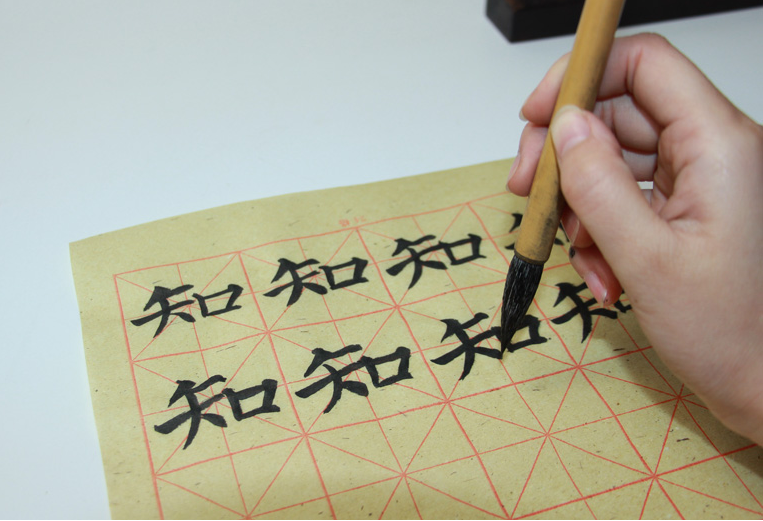 知知知
知知知知